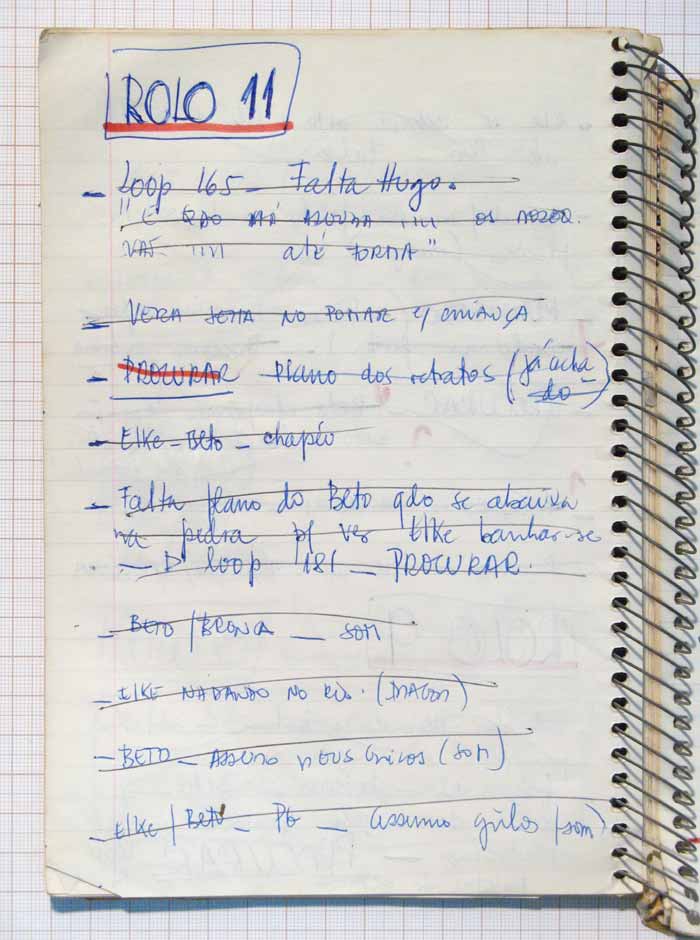 ROLO 11
- Loop 165 - Falta Hugo.
" E QDO HÁ os
até FORMA"
- VERA NO POMAR c/ CRIANÇA
- PROCURAR Plano dos retratos (já acha
do)
- Elke - Beto - chapéu
- Falta plano do Beto qdo se abaixa
na pedra p/ ver Elke banhar-se
loop 181 - PROCURAR.
- BETO / BRONCA - SOM
- ELKE NADANDO NO RIO. (IMAGEM)
- BETO - (SOM)
- Elke / Beto - PG - assumo grilos (som)